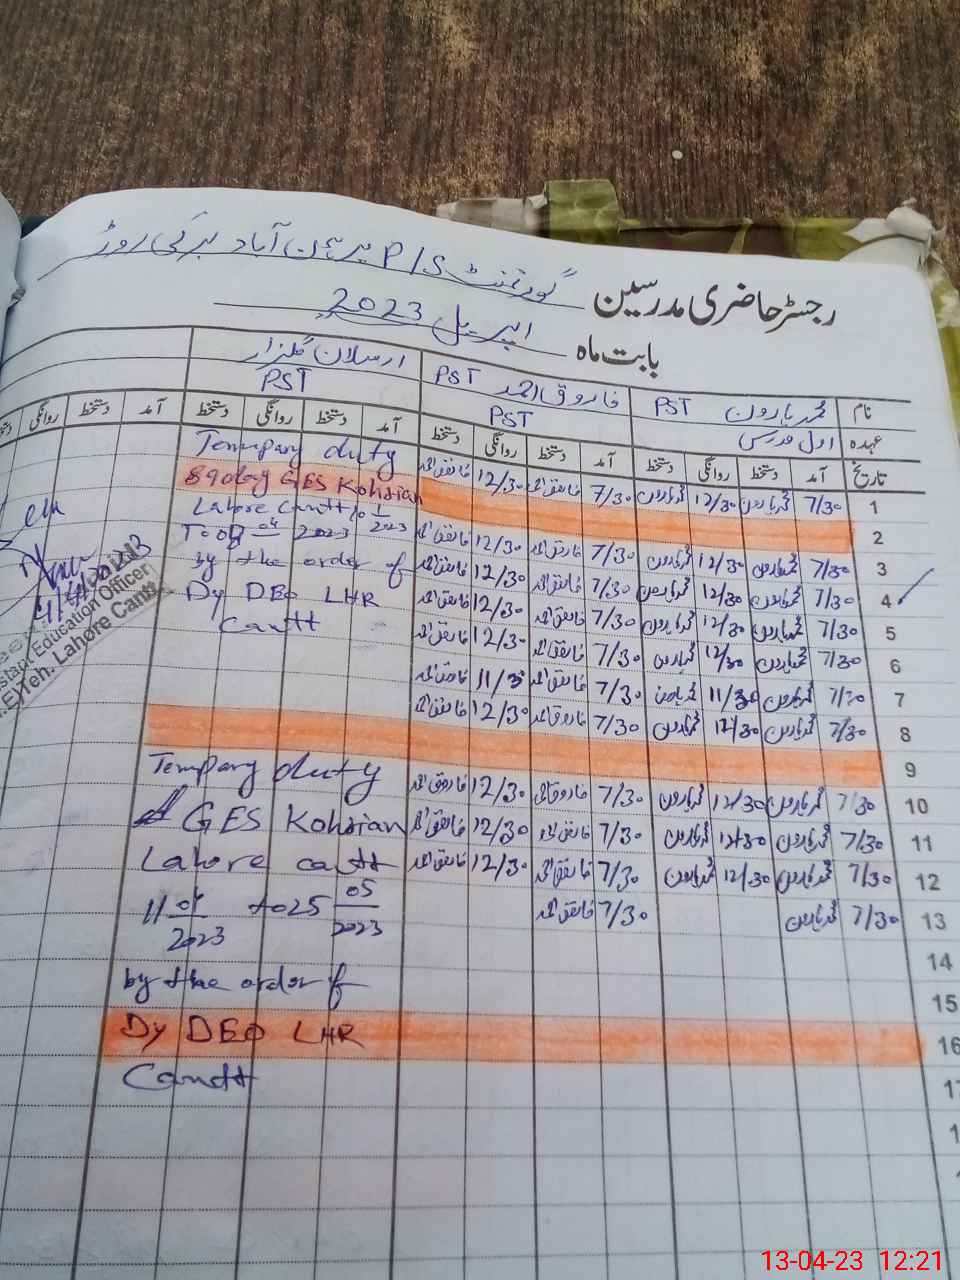 گورنمنٹ P/S برہمن آباد برکی روڑ
رجسٹر حاضری مدرسین
بابت ماہ اپریل 2023
نام محمد ہارون PST فاروق احمد PST ارسلان گلزار
عہدہ اول مدرس PST PST
تاریخ آمد دستخط روانگی دستخط آمد دستخط روانگی دستخط آمد دستخط روانگی دستخط آمد دستخط روانگی
1 7/30 محمد ہارون 12/30 محمد ہارون 7/30 فاروق احمد 12/30 فاروق احمد
2
3 7/30 محمد ہارون 12/30 محمد ہارون 7/30 فاروق احمد 12/30 فاروق احمد
4 7/30 محمد ہارون 12/30 محمد ہارون 7/30 فاروق احمد 12/30 فاروق احمد
5 7/30 محمد ہارون 12/30 محمد ہارون 7/30 فاروق احمد 12/30 فاروق احمد
6 7/30 محمد ہارون 12/30 محمد ہارون 7/30 فاروق احمد 12/30 فاروق احمد
7 7/30 محمد ہارون 11/30 محمد ہارون 7/30 فاروق احمد 11/30 فاروق احمد
8 7/30 محمد ہارون 12/30 محمد ہارون 7/30 فاروق احمد 12/30 فاروق احمد
9
10 7/30 محمد ہارون 12/30 محمد ہارون 7/30 فاروق احمد 12/30 فاروق احمد
11 7/30 محمد ہارون 12/30 محمد ہارون 7/30 فاروق احمد 12/30 فاروق احمد
12 7/30 محمد ہارون 12/30 محمد ہارون 7/30 فاروق احمد 12/30 فاروق احمد
13 7/30 محمد ہارون 7/30 فاروق احمد
14
15
16
Tempary duty
89 day GES Kohrian
Lahore Cantt 1/2023
To 08 04 2023
by the order of
Dy DEO LHR
Cantt
Tempary duty
GES Kohrian
Lahore cantt
11 04/2023 to 25 05/2023
by the order of
Dy DEO LHR
Cantt
Education Officer
Lahore Cantt.
13-04-23 12:21